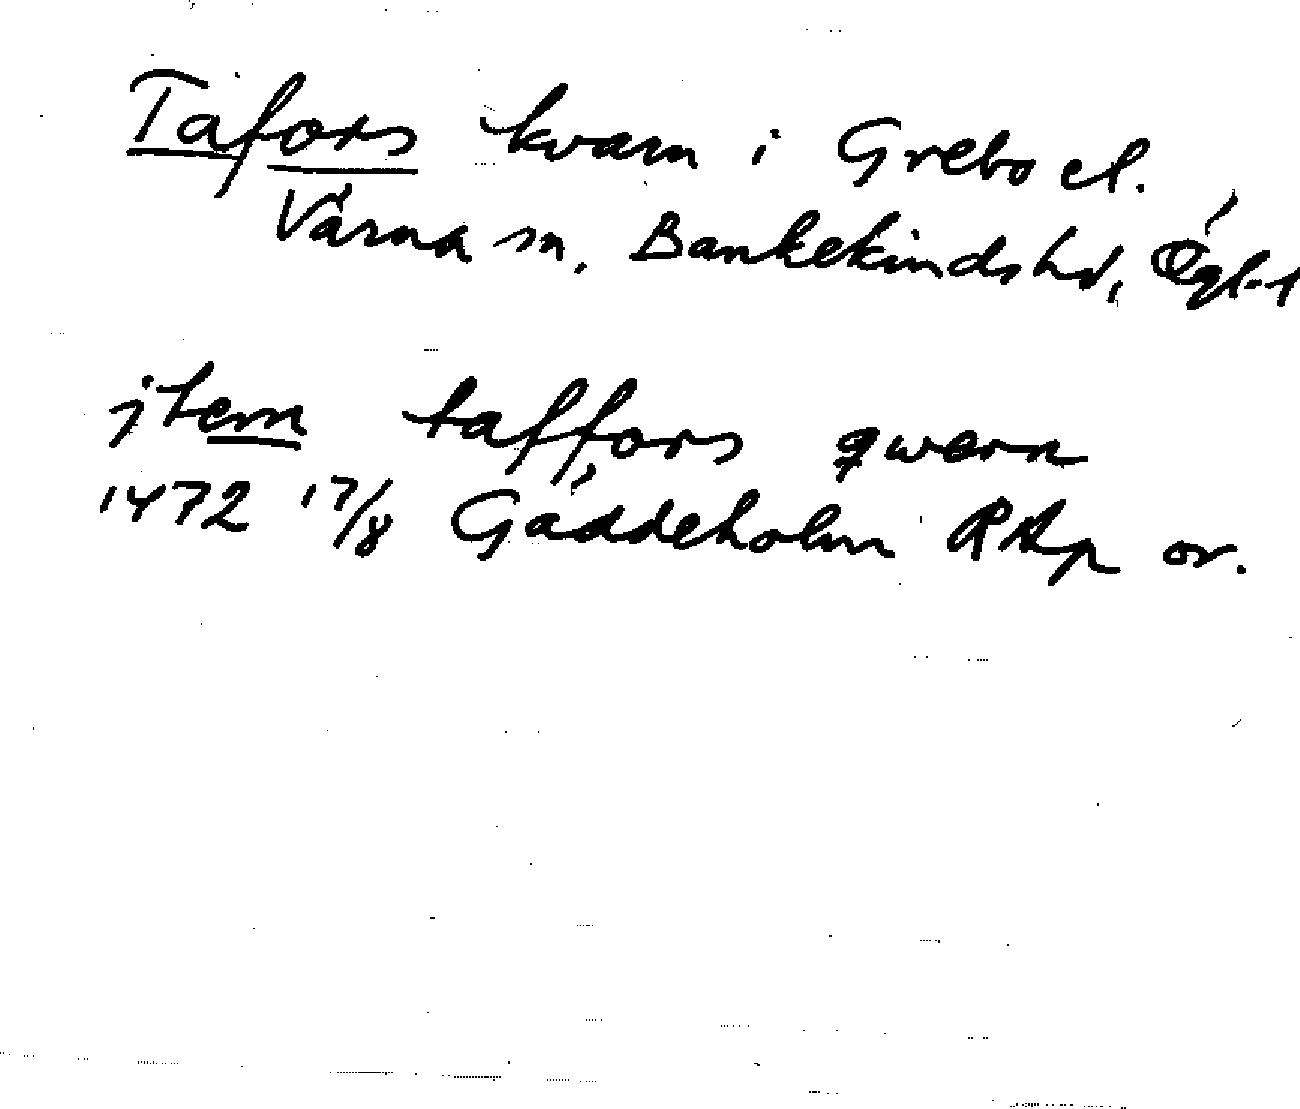 Tåfors kvarn i Grebo el.
Värna sn, Bankekinds hd, Ögl.
jtem taffors qwern
1472 17/8 Gäddeholm RAp or.